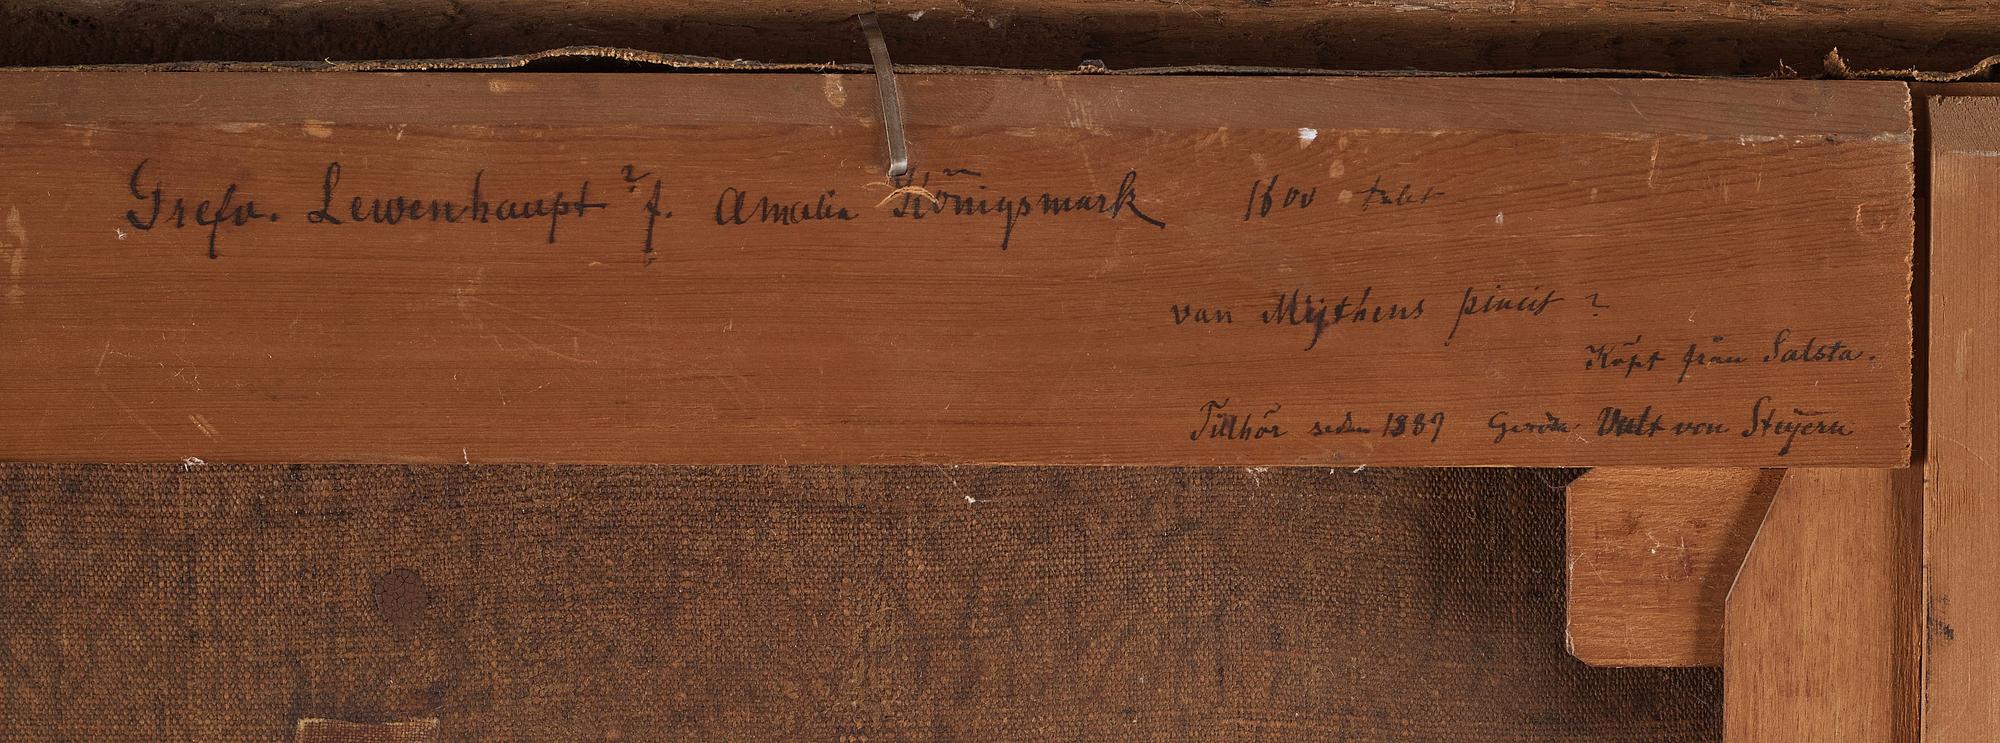 Grefv. Lewenhaupt? f. Amalia Königsmark 1600 talet
van Mijthens pincit?
Köpt från Salsta.
Tillhör sedan 1889 Gerda Vult von Steijern